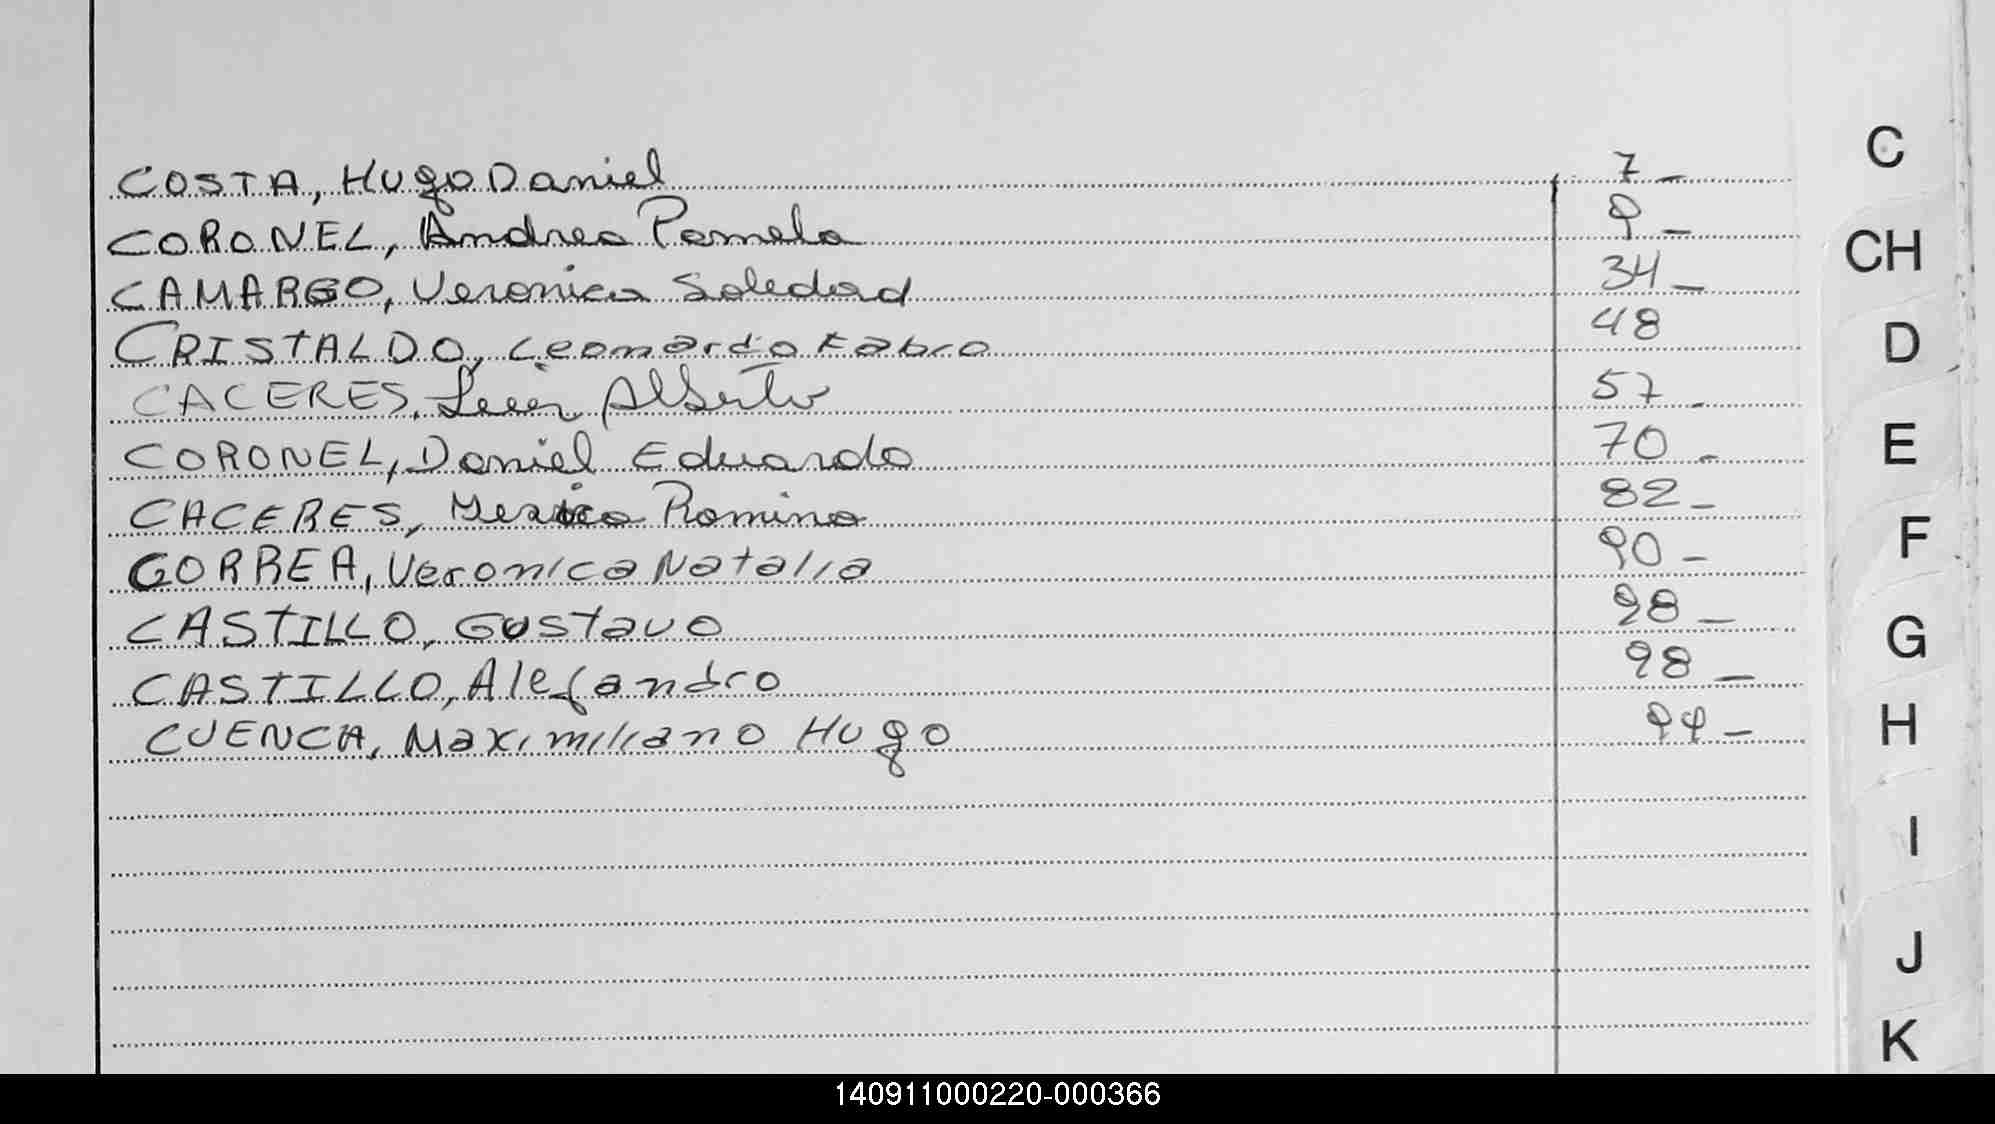 COSTA, Hugo Daniel 7_
CORONEL, Andrea Pamela 9_
CAMARGO, Veronica Soledad 34_
CRISTALDO, Leonardo Fabio 48
CACERES, Alberto 57_
CORONEL, Daniel Eduardo 70_
CACERES, Romina 82_
CORREA, Veronica Natalia 90_
CASTILLO, Gustavo 98_
CASTILLO, Alejandro 98_
CUENCA, Maximiliano Hugo 99_
C
CH
D
E
F
G
H
I
J
K
140911000220-000366